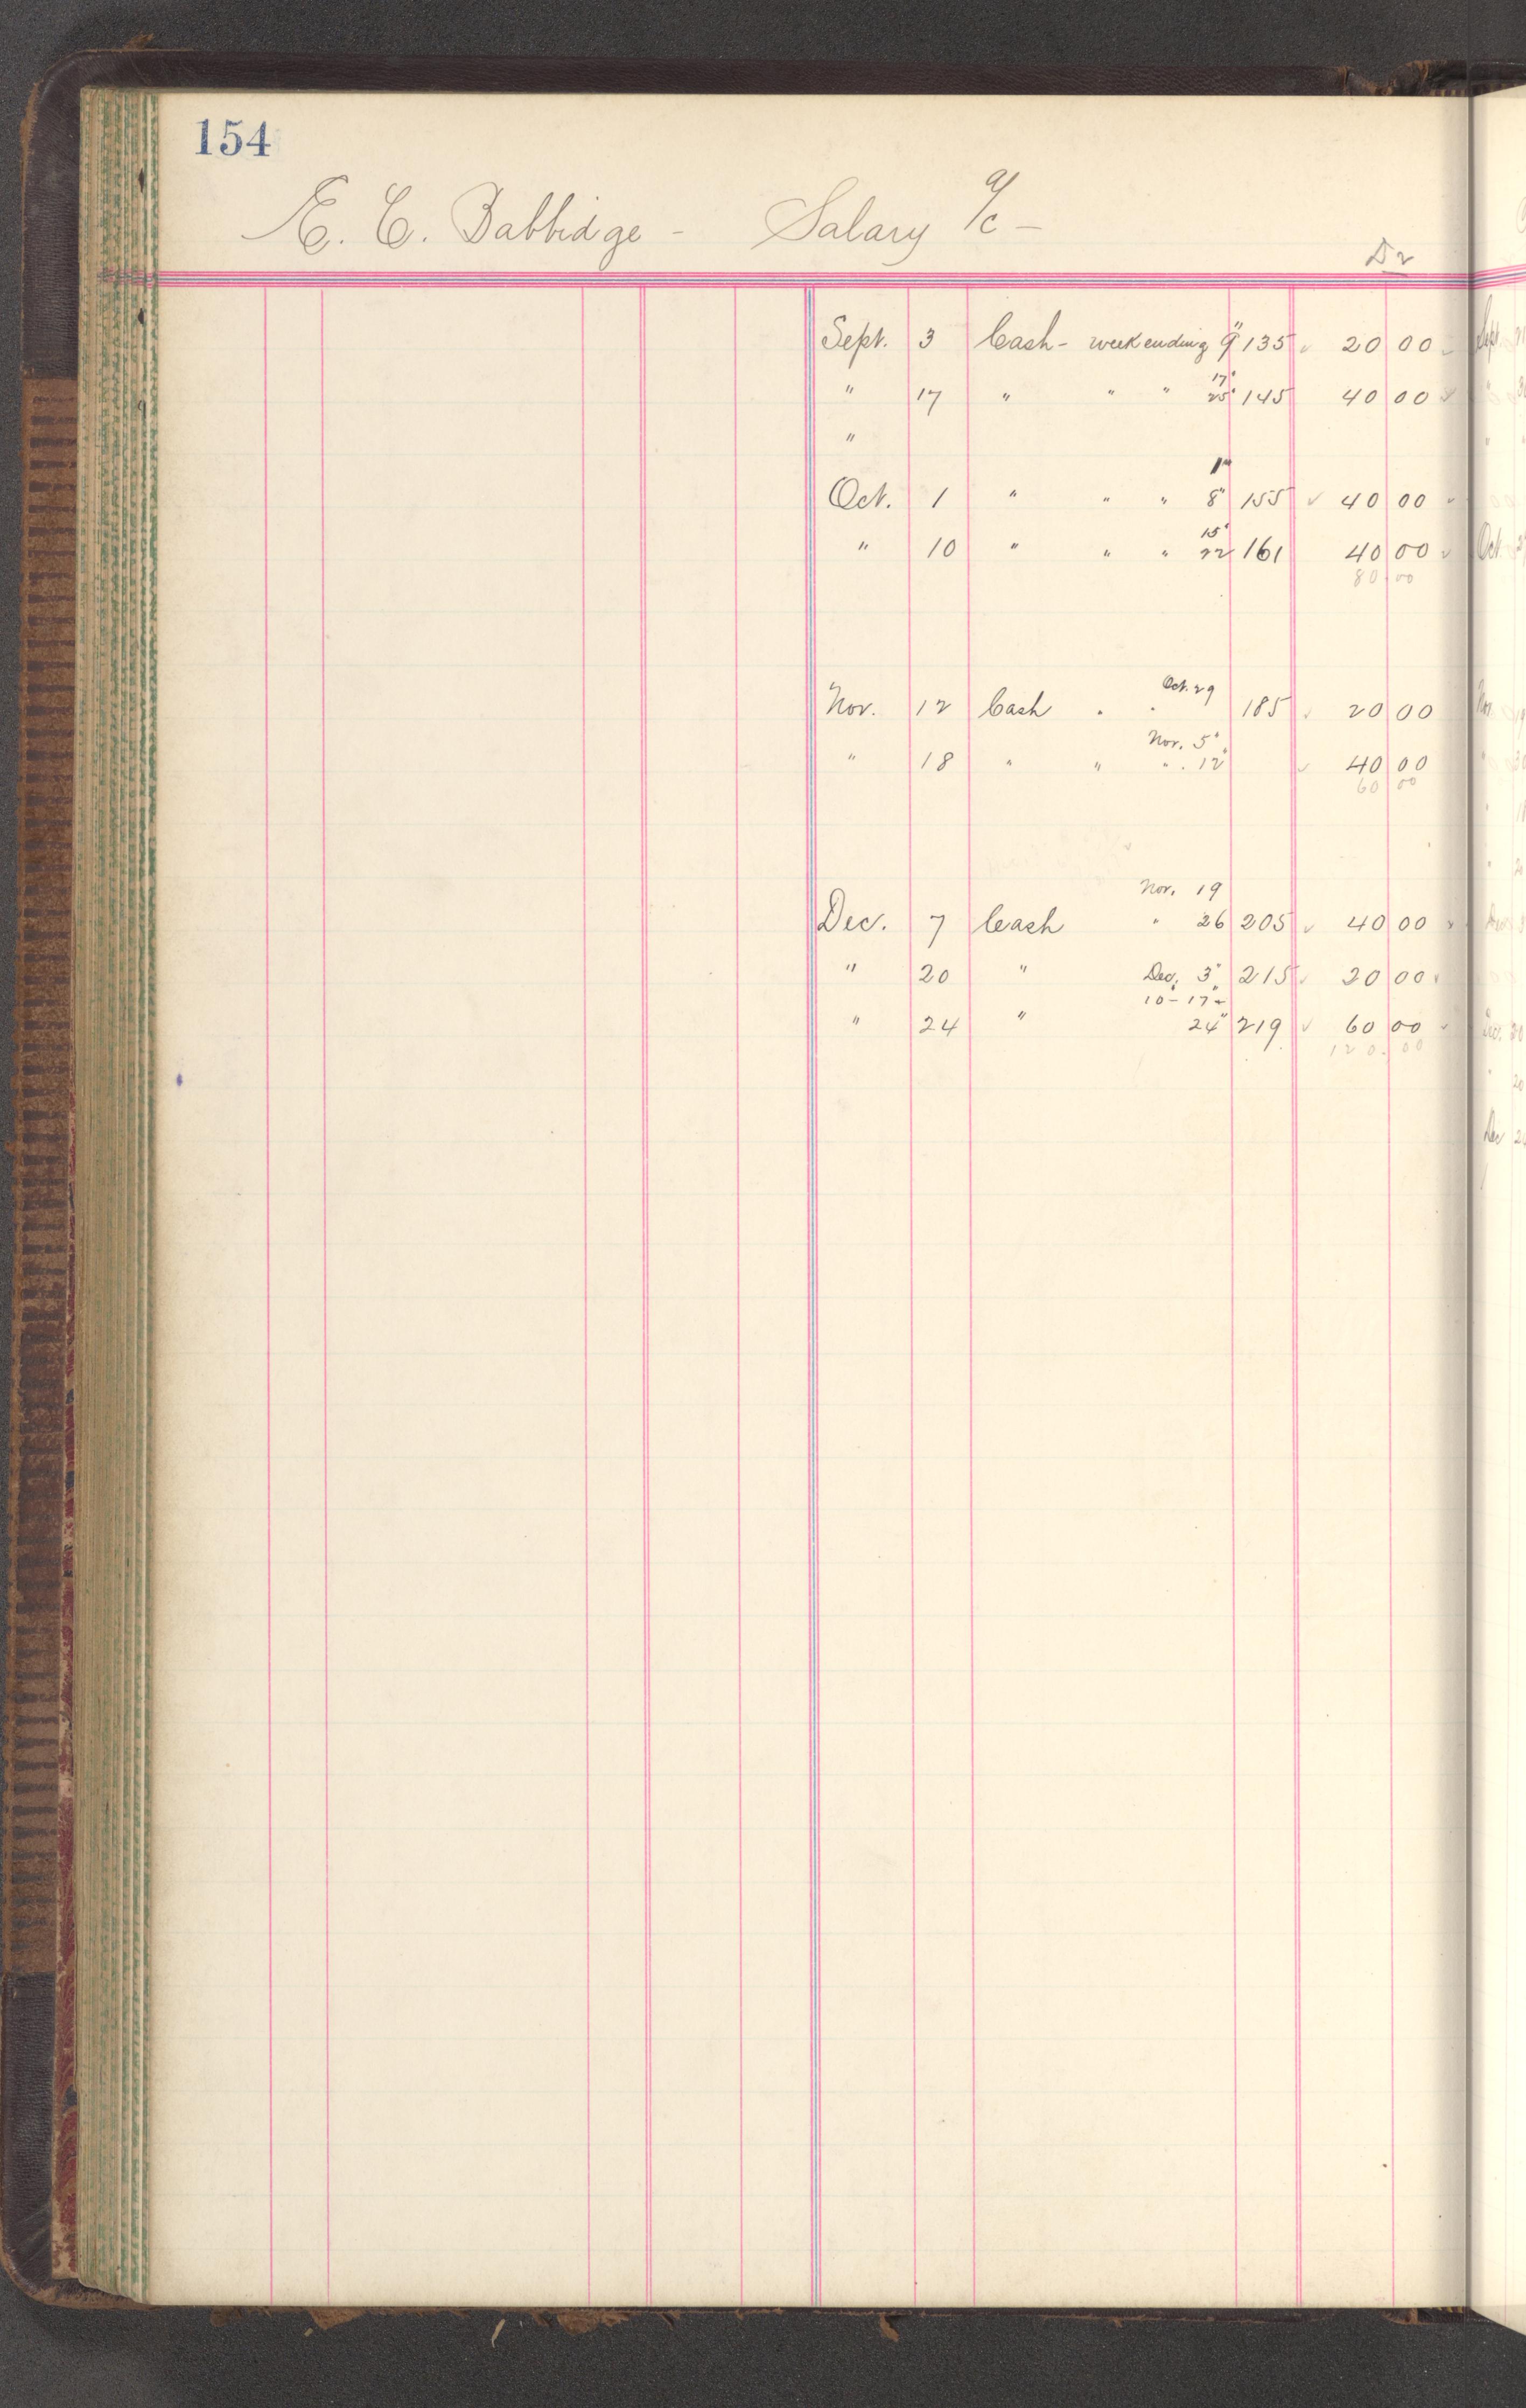 154
E. C. Babbidge - Salary a/c -
Dr
Sept. 3 Cash - week ending 9" 135 ✓ 20 00 ✓
17"
" 17 " " " 25" 145 40 00 ✓
"
1"
Oct. 1 " " " 8" 155 ✓ 40 00 ✓
15"
" 10 " " " 22 161 40 00 ✓
80.00
Oct. 29
Nov. 12 Cash " " 185 ✓ 20 00
Nov. 5"
" 18 " " " . 12" ✓ 40 00
60 00
Nov. 19
Dec. 7 Cash " 26 205 ✓ 40 00 ✓
" 20 " Dec. 3" 215 ✓ 20 00 ✓
10 - 17 +
" 24 " 24" 219 ✓ 60 00 ✓
120.00
Sept
Oct.
Nov.
Dec.
Dec